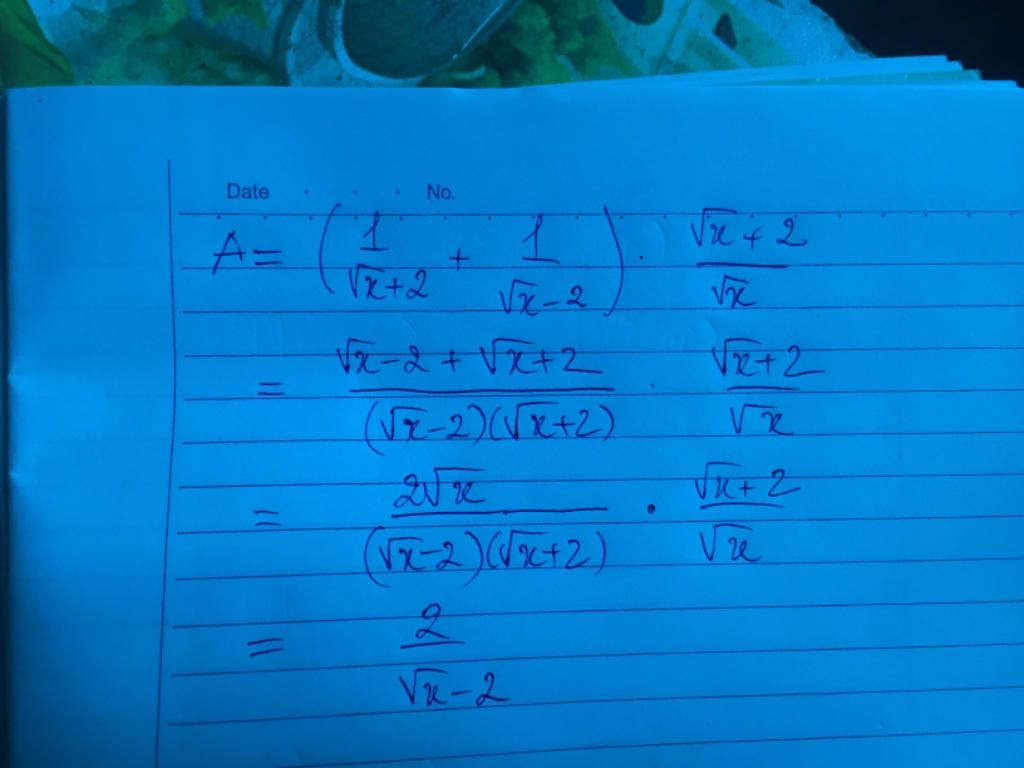 Date . . . No.
A = (1/(√x+2) + 1/(√x-2)) . (√x+2)/√x
= (√x-2+√x+2)/((√x-2)(√x+2)) . (√x+2)/√x
= 2√x/((√x-2)(√x+2)) . (√x+2)/√x
= 2/(√x-2)